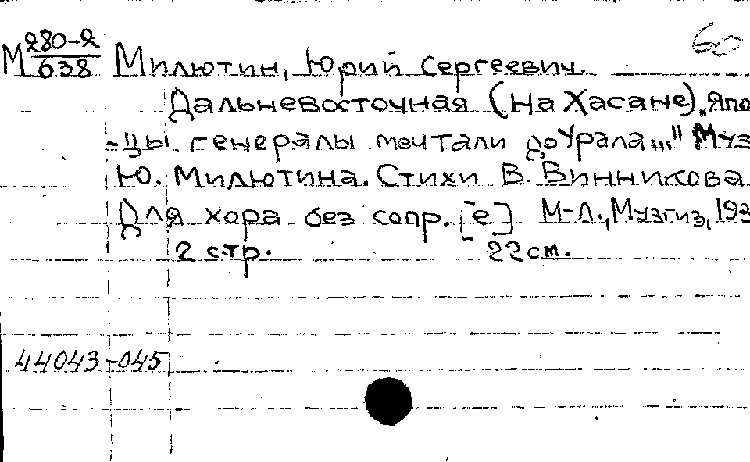 60
М 280-2
638 Милютин, Юрий Сергеевич
Дальневосточная (на Хасане). „Япо
-цы генералы мечтали до Урала..." Муз
Ю. Милютина. Стихи В. Винникова
Для хора без сопр. [е] М-Л., Музгиз, 193
2 стр. 22 см.
44043-045